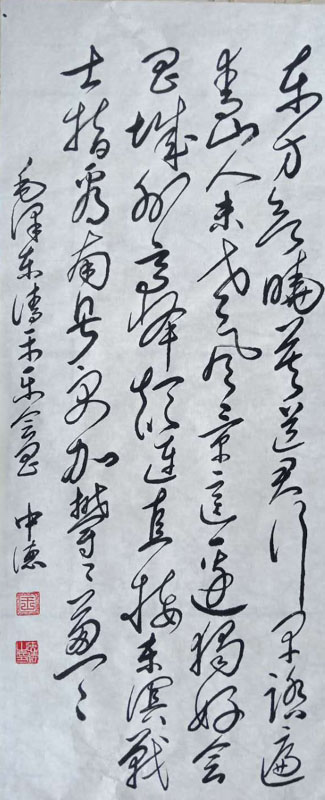 东方欲晓莫道君行早踏遍
青山人未老风景这边独好会
昌城外高峰颠连直接东溟战
士指看南粤更加郁郁葱葱
毛泽东清平乐会昌 中德